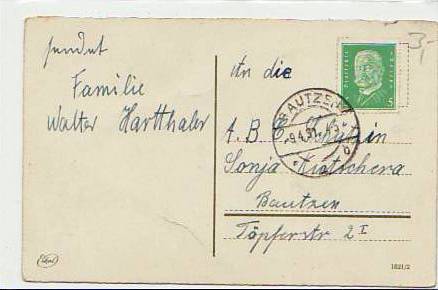 sendet
Familie
Walter Hartthaler
An die
A. B. C. Schützin
Sonja Kutschera
Bautzen
Töpferstr 2 I
BAUTZEN
-9.4.31.
5
1821/2